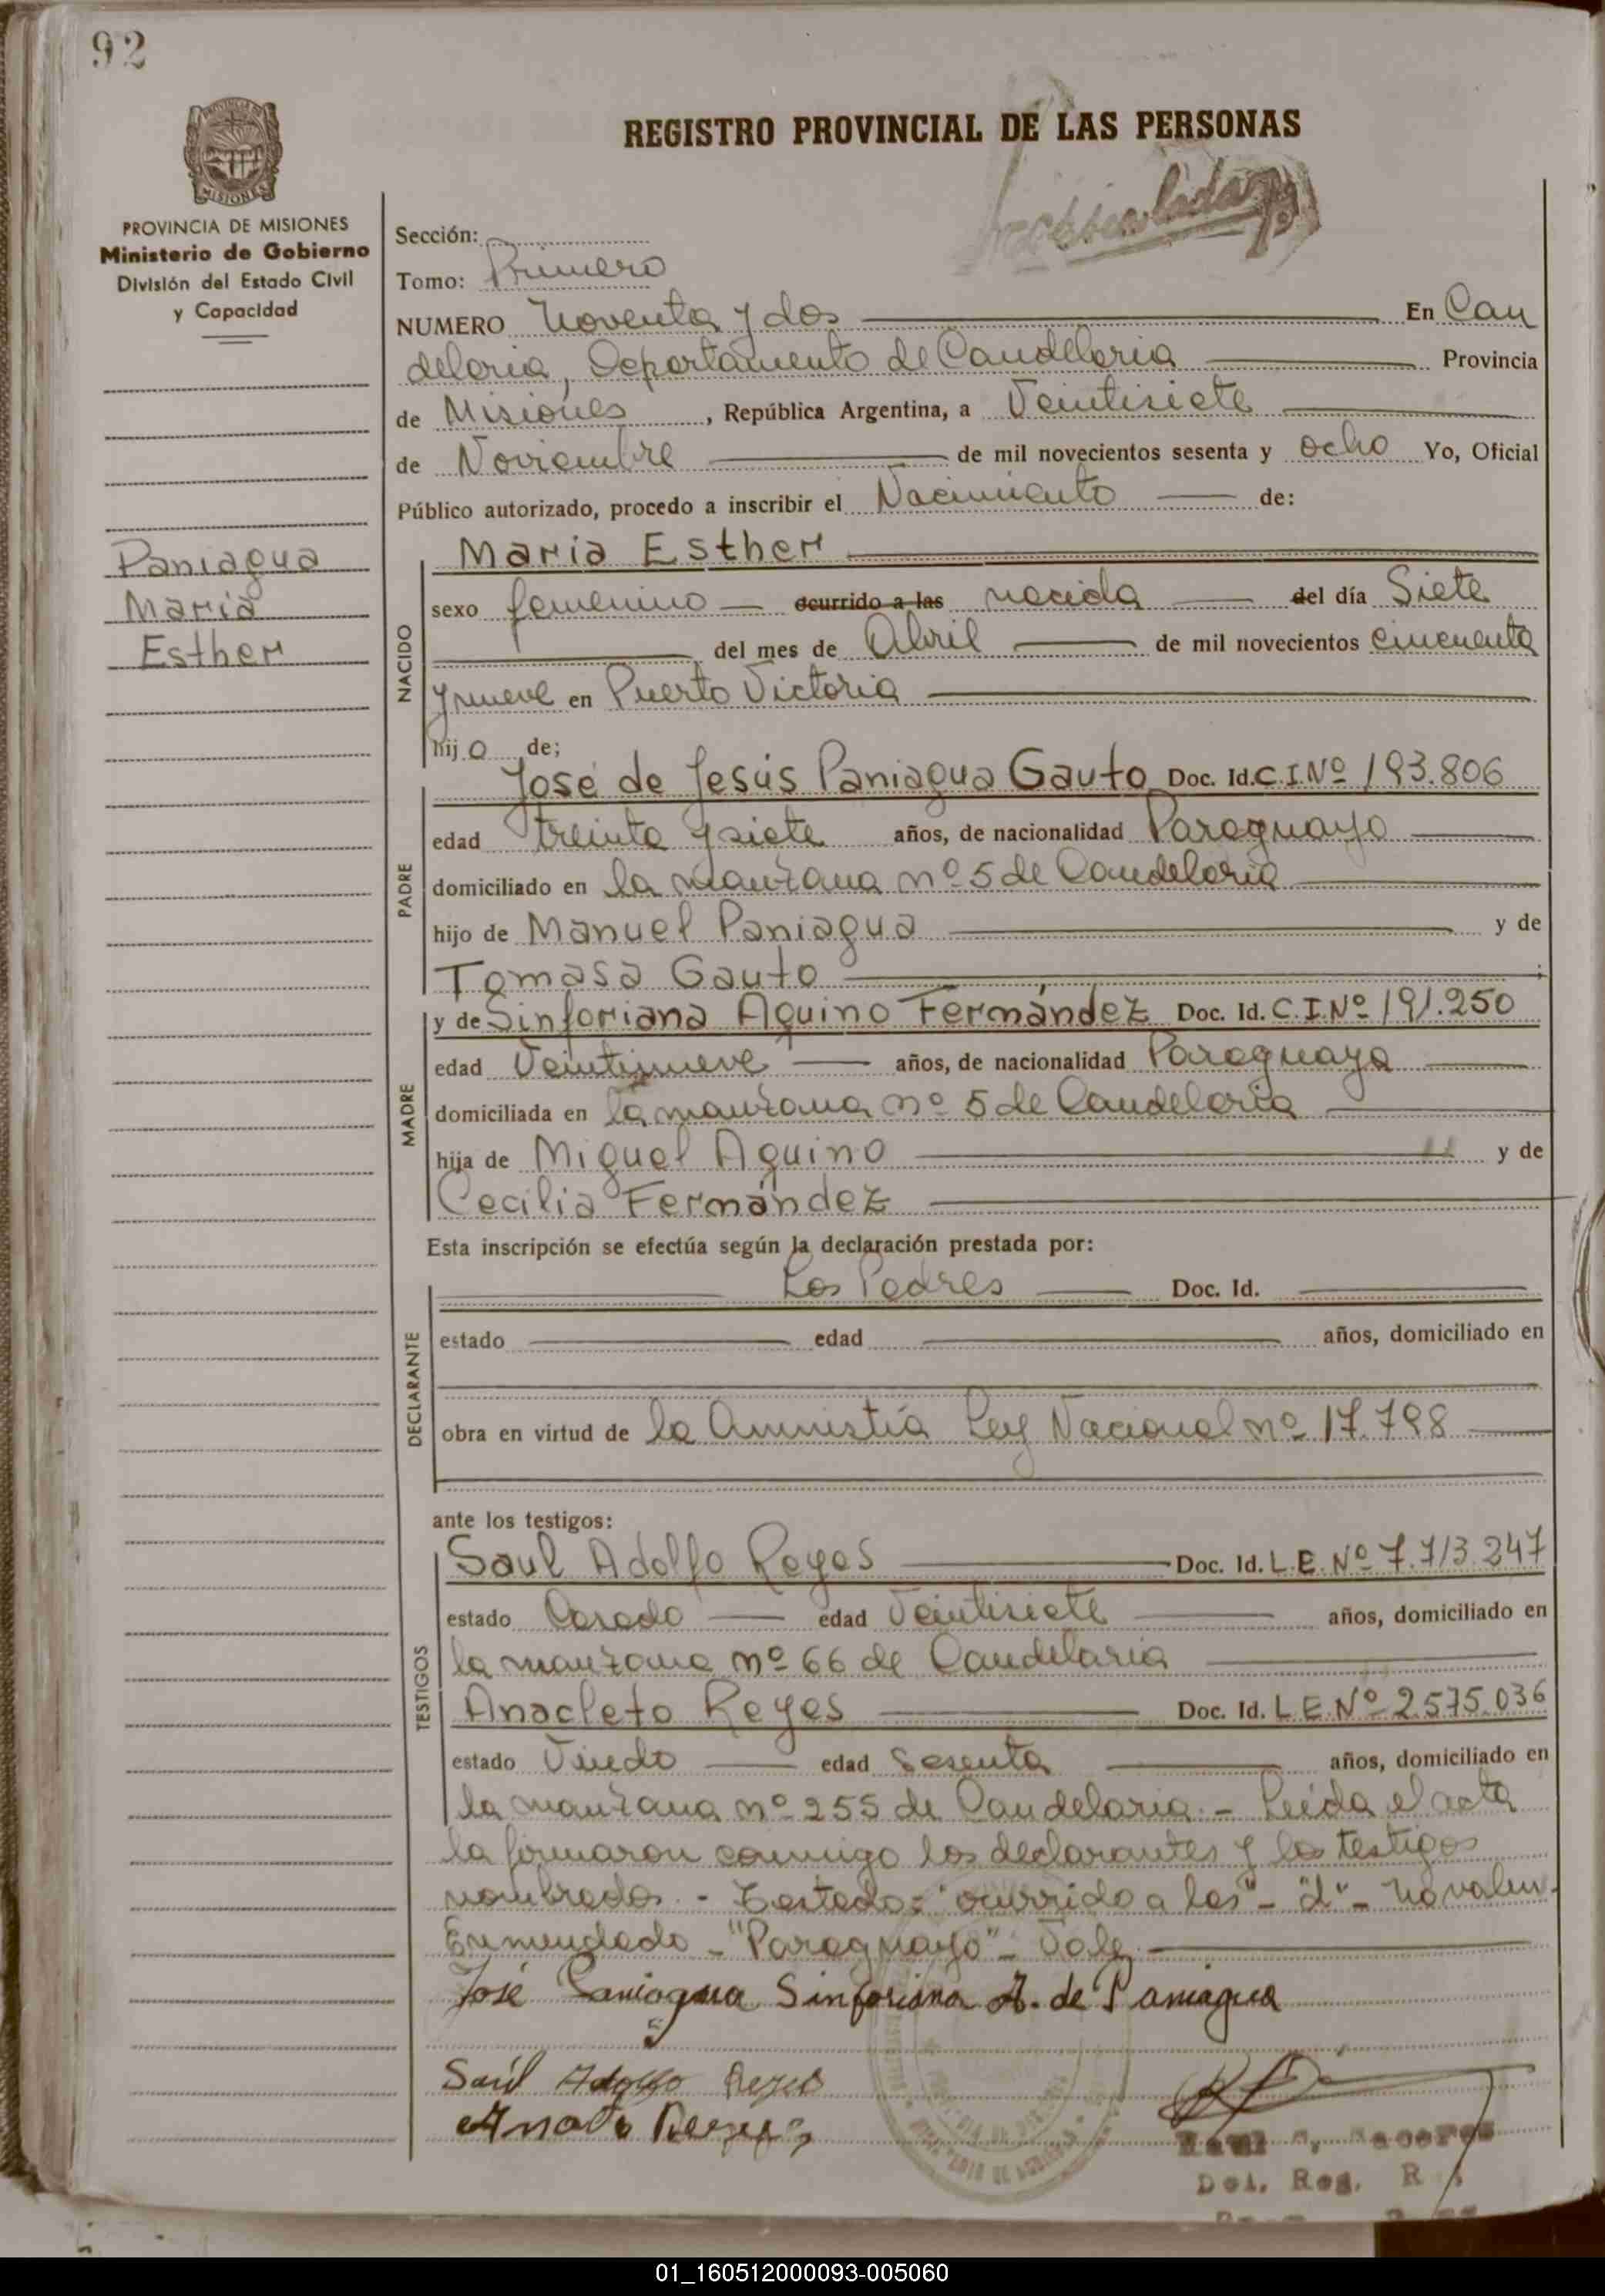 92
REGISTRO PROVINCIAL DE LAS PERSONAS
PROVINCIA DE MISIONES
Ministerio de Gobierno
División del Estado Civil
y Capacidad
Paniagua
Maria
Esther
Sección:
Tomo: Primero
NUMERO Noventa y dos En Can
delaria, Departamento de Candelaria Provincia
de Misiones, República Argentina, a Veintisiete
de Noviembre de mil novecientos sesenta y ocho Yo, Oficial
Público autorizado, procedo a inscribir el Nacimiento de:
NACIDO
Maria Esther
sexo femenino ocurrido a las nacida del día Siete
del mes de Abril de mil novecientos cincuenta
y nueve en Puerto Victoria
hija de;
PADRE
José de Jesús Paniagua Gauto Doc. Id. C.I. Nº 193.806
edad treinta y siete años, de nacionalidad Paraguayo
domiciliado en la manzana nº 5 de Candelaria
hijo de Manuel Paniagua y de
Tomasa Gauto ;
MADRE
y de Sinforiana Aquino Fernández Doc. Id. C.I. Nº 191.250
edad Veintinueve años, de nacionalidad Paraguaya
domiciliada en la manzana nº 5 de Candelaria
hija de Miguel Aquino y de
Cecilia Fernández
Esta inscripción se efectúa según la declaración prestada por:
DECLARANTE
Los Padres Doc. Id.
estado edad años, domiciliado en
obra en virtud de la Amnistía Ley Nacional nº 17.798
ante los testigos:
TESTIGOS
Saul Adolfo Reyes Doc. Id. L.E. Nº 7.713.247
estado Casado edad Veintisiete años, domiciliado en
la manzana nº 66 de Candelaria
Anacleto Reyes Doc. Id. L.E. Nº 2.575.036
estado Viudo edad Sesenta años, domiciliado en
la manzana nº 255 de Candelaria.- Leída el acta
la firmaron conmigo los declarantes y los testigos
nombrados.- Testado: "ocurrido a las"- "d"- No valen.
Enmendado- "Paraguayo"- Vale.
José Paniagua Sinforiana A. de Paniagua
Saúl Adolfo Reyes
Reyes
Del. Reg.
01_160512000093-005060